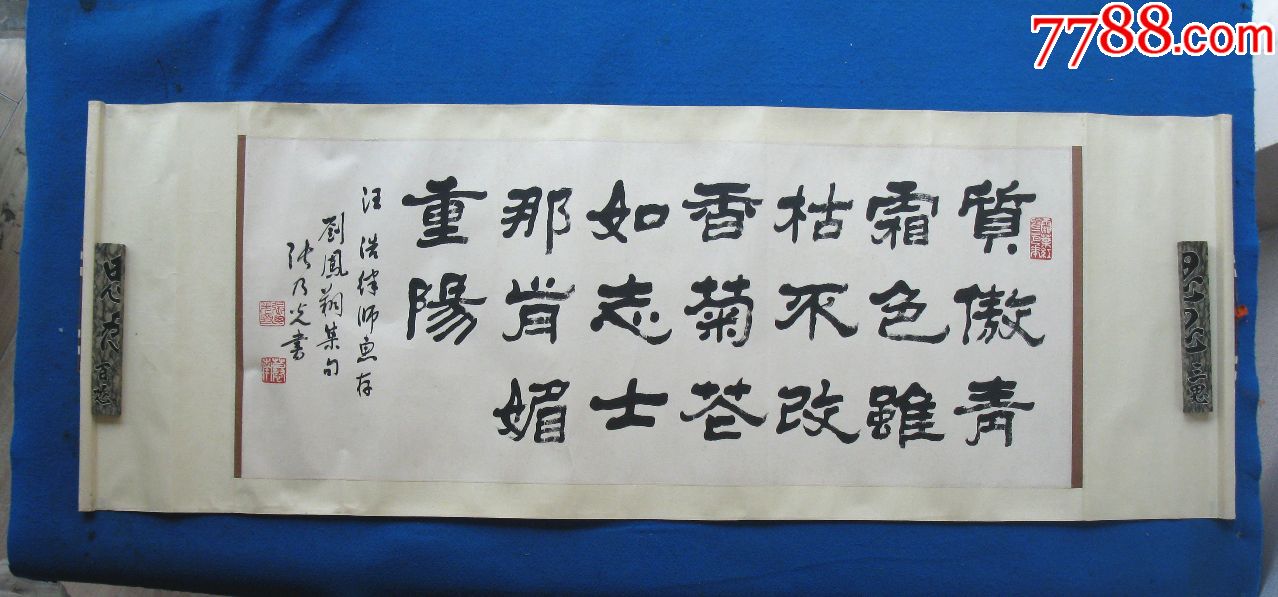 7788.com
質傲青
霜色雖
枯不改
香菊花
如志士
那肯媚
重陽
汪浩律师惠存
劉鳳翔集句
張乃光書
三思
百忍